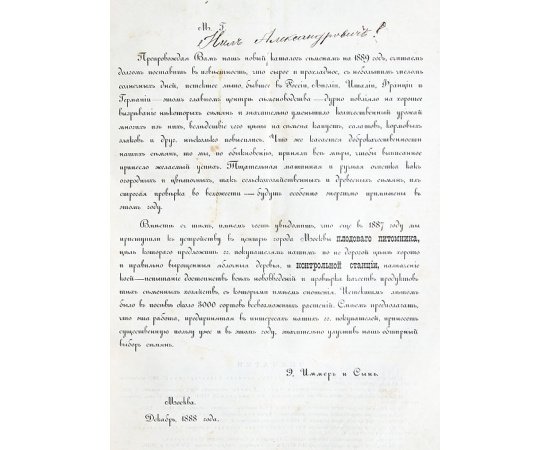 М. Г.
Нилъ Александровичъ!
Препровождая Вамъ нашъ новый каталогъ сѣменамъ на 1889 годъ, считаемъ
долгомъ поставить въ извѣстность, что сырое и прохладное, съ небольшимъ числомъ
солнечныхъ дней, истекшее лѣто, бывшее въ Россіи, Англіи, Италіи, Франціи и
Германіи — этомъ главномъ центрѣ сѣменоводства — дурно повліяло на хорошее
вызрѣваніе нѣкоторыхъ сѣмянъ и значительно уменьшило количественный урожай
многихъ изъ нихъ, вслѣдствіе чего цѣны на сѣмена капусты, салатовъ, кормовыхъ
злаковъ и друг. нѣсколько повысились. Что же касается доброкачественности
нашихъ сѣмянъ, то мы, по обыкновенію, приняли всѣ мѣры, чтобы выписанное
принесло желаемый успѣхъ. Тщательная машинная и ручная очистка какъ
огородныхъ и цвѣточныхъ, такъ сельскохозяйственныхъ и древесныхъ сѣмянъ, ихъ
строгая провѣрка во всхожести — будутъ особенно энергично примѣнены въ
этомъ году.
Вмѣстѣ съ тѣмъ, имѣемъ честь увѣдомить, что еще въ 1887 году мы
приступили къ устройству въ центрѣ города Москвы плодоваго питомника,
цѣль котораго предложить гг. покупателямъ нашимъ по не дорогой цѣнѣ хорошо
и правильно вырощенныя яблочныя деревья, и контрольной станціи, назначеніе
коей — испытаніе достоинствъ всѣхъ нововведеній и провѣрка качествъ продуктовъ
тѣхъ сѣменныхъ хозяйствъ, съ которыми имѣемъ сношенія. Истекшимъ лѣтомъ
было въ посѣвѣ около 3000 сортовъ всевозможныхъ растеній. Смѣемъ предполагать,
что эта работа, предпринятая въ интересахъ нашихъ гг. покупателей, принесетъ
существенную пользу уже и въ этомъ году, значительно улучшивъ нашъ обширный
выборъ сѣмянъ.
Э. Иммеръ и Сынъ.
Москва.
Декабрь 1888 года.